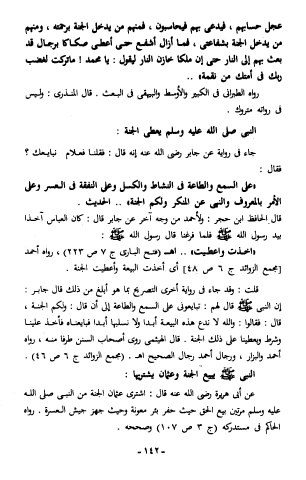 عجل حسابهم ، فيدعى بهم فيحاسبون ، فمنهم من يدخل الجنة برحمته ، ومنهم
من يدخل الجنة بشفاعتى ، فما أزال أشفع حتى أعطى صكاكا برجال قد
بعث بهم إلى النار حتى إن ملكا خازن النار ليقول : يا محمد ! ماتركت لغضب
ربك فى أمتك من نقمة» ..
رواه الطبرانى فى الكبير والأوسط والبيهقى فى البعث . قال المنذرى : وليس
فى رواته متروك .
النبى صلى الله عليه وسلم يعطى الجنة :
جاء فى رواية عن جابر رضى الله عنه إنه قال : فقلنا فعلام نبايعك ؟
قال :
«على السمع والطاعة فى النشاط والكسل وعلى النفقة فى العسر وعلى
الأمر بالمعروف والنهى عن المنكر ولكم الجنة» .. الحديث .
قال الحافظ ابن حجر : ولأحمد من وجه آخر عن جابر قال : كان العباس آخذا
بيد رسول الله ﷺ فلما فرغنا قال رسول الله ﷺ
«أخذت وأعطيت» .. اهـ (فتح البارى ج ٧ ص ٢٢٣) ، رواه أحمد
[مجمع الزوائد ج ٦ ص ٤٨] أى أخذت البيعة وأعطيت الجنة .
قلت : وقد جاء فى رواية أخرى التصريح بما هو أبلغ من ذلك قال جابر :
إن النبى ﷺ قال لهم : تبايعونى على السمع والطاعة إلى أن قال : ولكم الجنة ،
قال : فقالوا : والله لا ندع هذه البيعة أبدا ولا نسلبها أبدا فبايعناه فأخذ علينا
وشرط ويعطينا على ذلك الجنة . قال الهيثمى روى أصحاب السنن طرفا منه ، رواه
أحمد والبزار ، ورجال أحمد رجال الصحيح اهـ . (مجمع الزوائد ج ٦ ص ٤٦) .
النبى ﷺ يبيع الجنة وعثمان يشتريها :
عن أبى هريرة رضى الله عنه قال : اشترى عثمان الجنة من النبى صلى الله
عليه وسلم مرتين بيع الحق حيث حفر بئر معونة وحيث جهز جيش العسرة . رواه
الحاكم فى مستدركه (ج ٣ ص ١٠٧) وصححه .
- ١٤٢ -